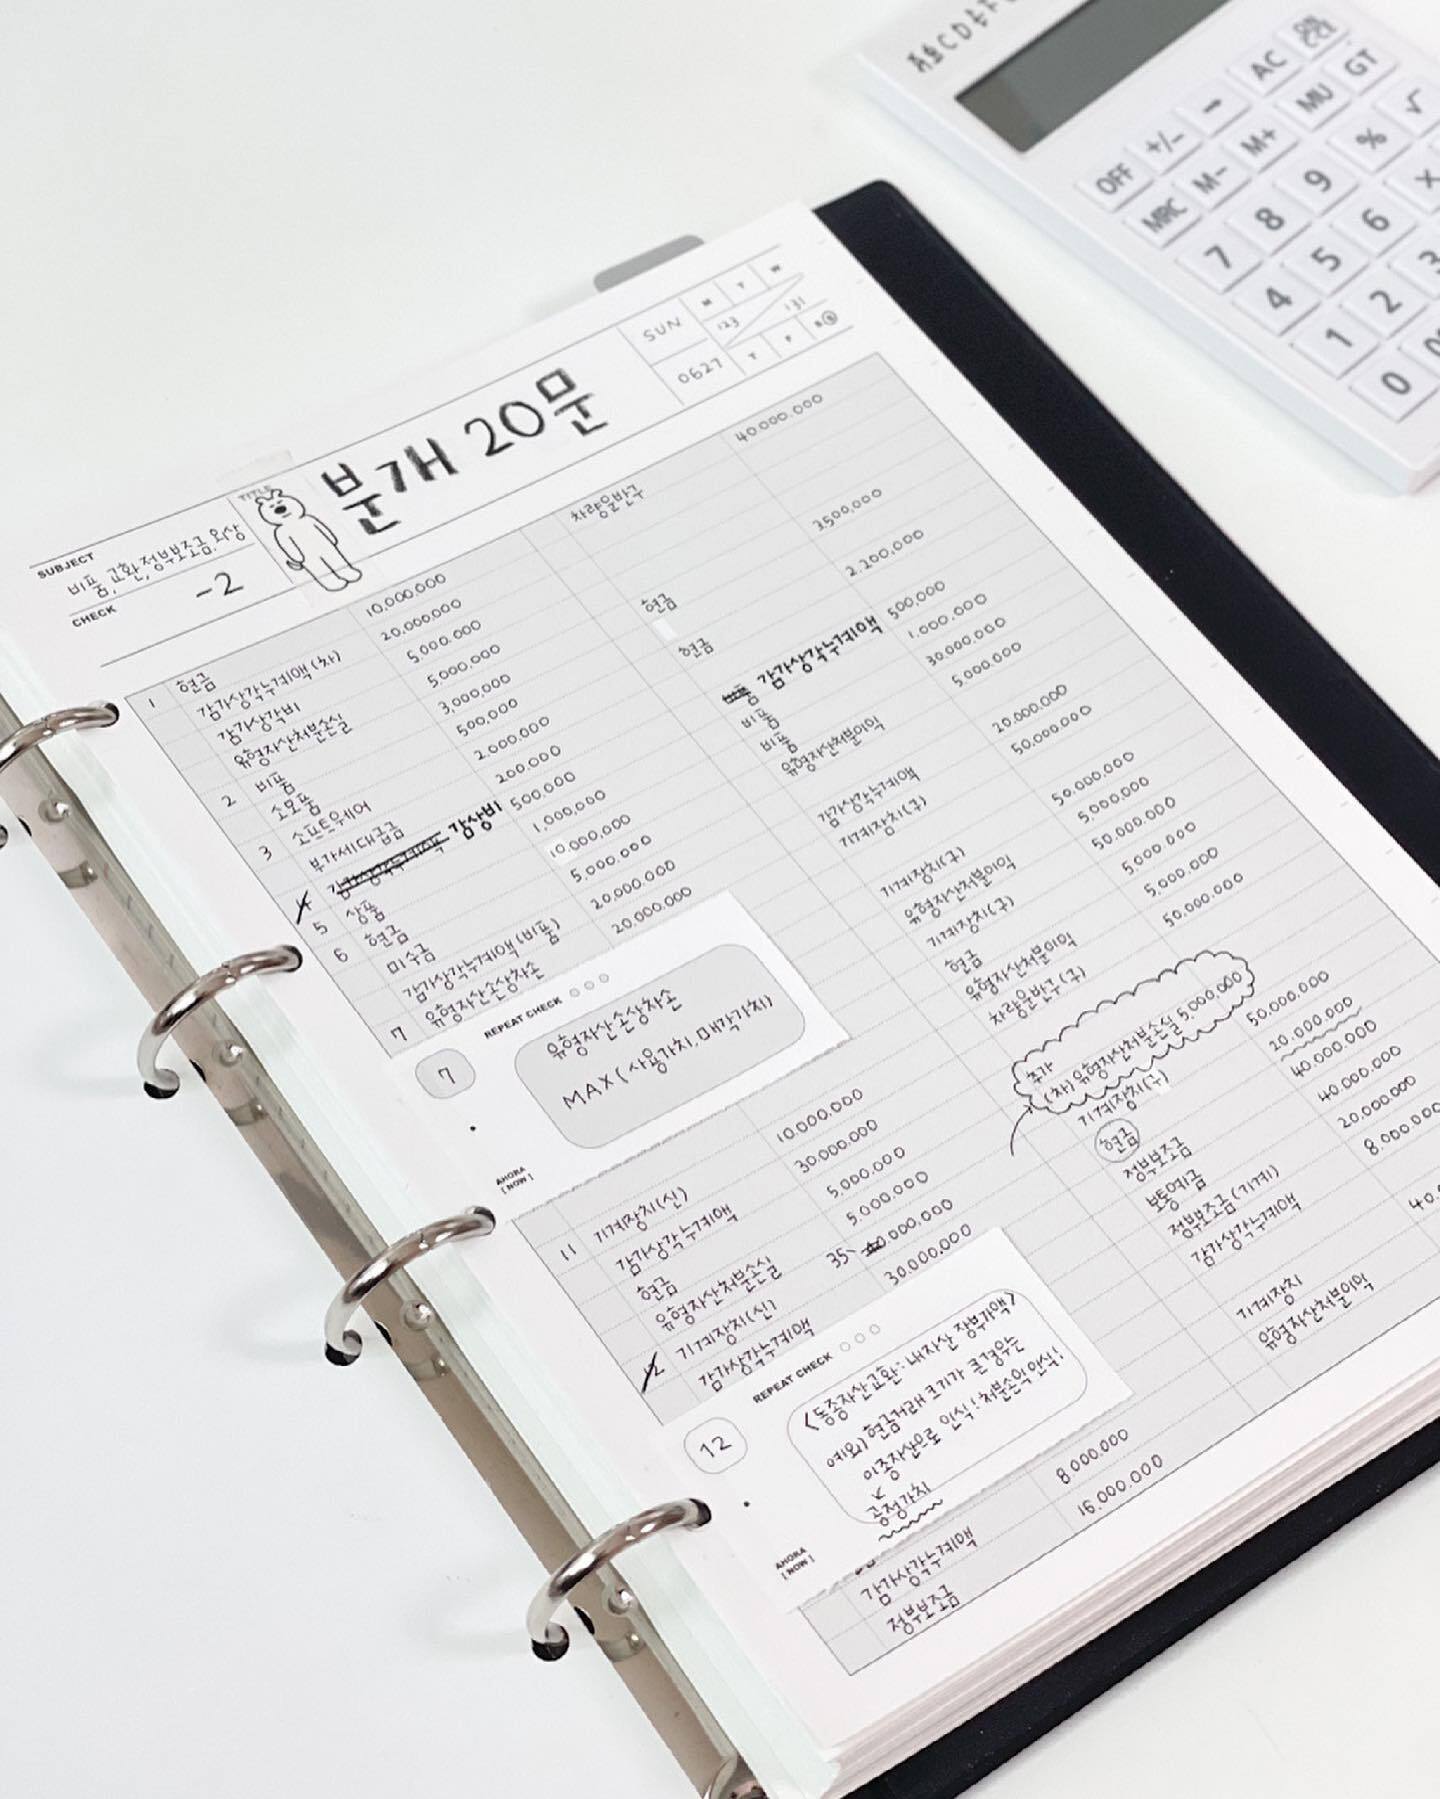 SUBJECT
비품,교환,정부보조금,외상
CHECK
-2
TITLE
분개 20문
SUN
M T W
123 / 131
0627
T F S S
1 현금 10,000,000 차량운반구 40.000.000
감가상각누계액(차) 20,000,000
감가상각비 5,000.000
유형자산처분손실 5,000,000
2 비품 3,000,000 현금 3,500,000
소모품 500,000
3 소프트웨어 2.000.000 현금 2.200,000
부가세대급금 200,000
4 감상비 500,000 감가상각누계액 500,000
5 상품 1,000,000 비품 1.000.000
6 현금 10,000,000 비품 30,000,000
미수금 5,000.000 유형자산처분이익 5,000,000
감가상각누계액(비품) 20,000,000
7 유형자산손상차손 20,000,000 감가상각누계액 20.000,000
기계장치(구) 50,000,000
기계장치(구) 50,000,000
유형자산처분이익 5,000,000
기계장치(구) 50.000,000
현금 5,000,000
유형자산처분이익 5,000,000
차량운반구(구) 50,000,000
REPEAT CHECK
7
유형자산손상차손
MAX(사용가치,매각가치)
AHORA
[NOW]
추가
(차)유형자산처분손실 5,000,000
11 기계장치(신) 10,000,000 기계장치(구) 50,000,000
감가상각누계액 30,000,000 현금 20,000,000
현금 5,000,000 정부보조금 40,000,000
유형자산처분손실 5,000,000 보통예금 40,000,000
12 기계장치(신) 35 0,000,000 정부보조금(기계) 20,000,000
감가상각누계액 30,000,000 감가상각누계액 8,000,000
기계장치 40.0
유형자산처분이익
REPEAT CHECK
12
<동종자산교환:내자산 장부가액>
예외)현금거래 크기가 큰경우는
이종자산으로 인식!처분손익인식!
공정가치
AHORA
[NOW]
8,000,000
감가상각누계액 16,000,000
정부보조금
OFF +/- AC
MRC M- M+ MU GT
7 8 9 % √
4 5 6 X
1 2 3
0